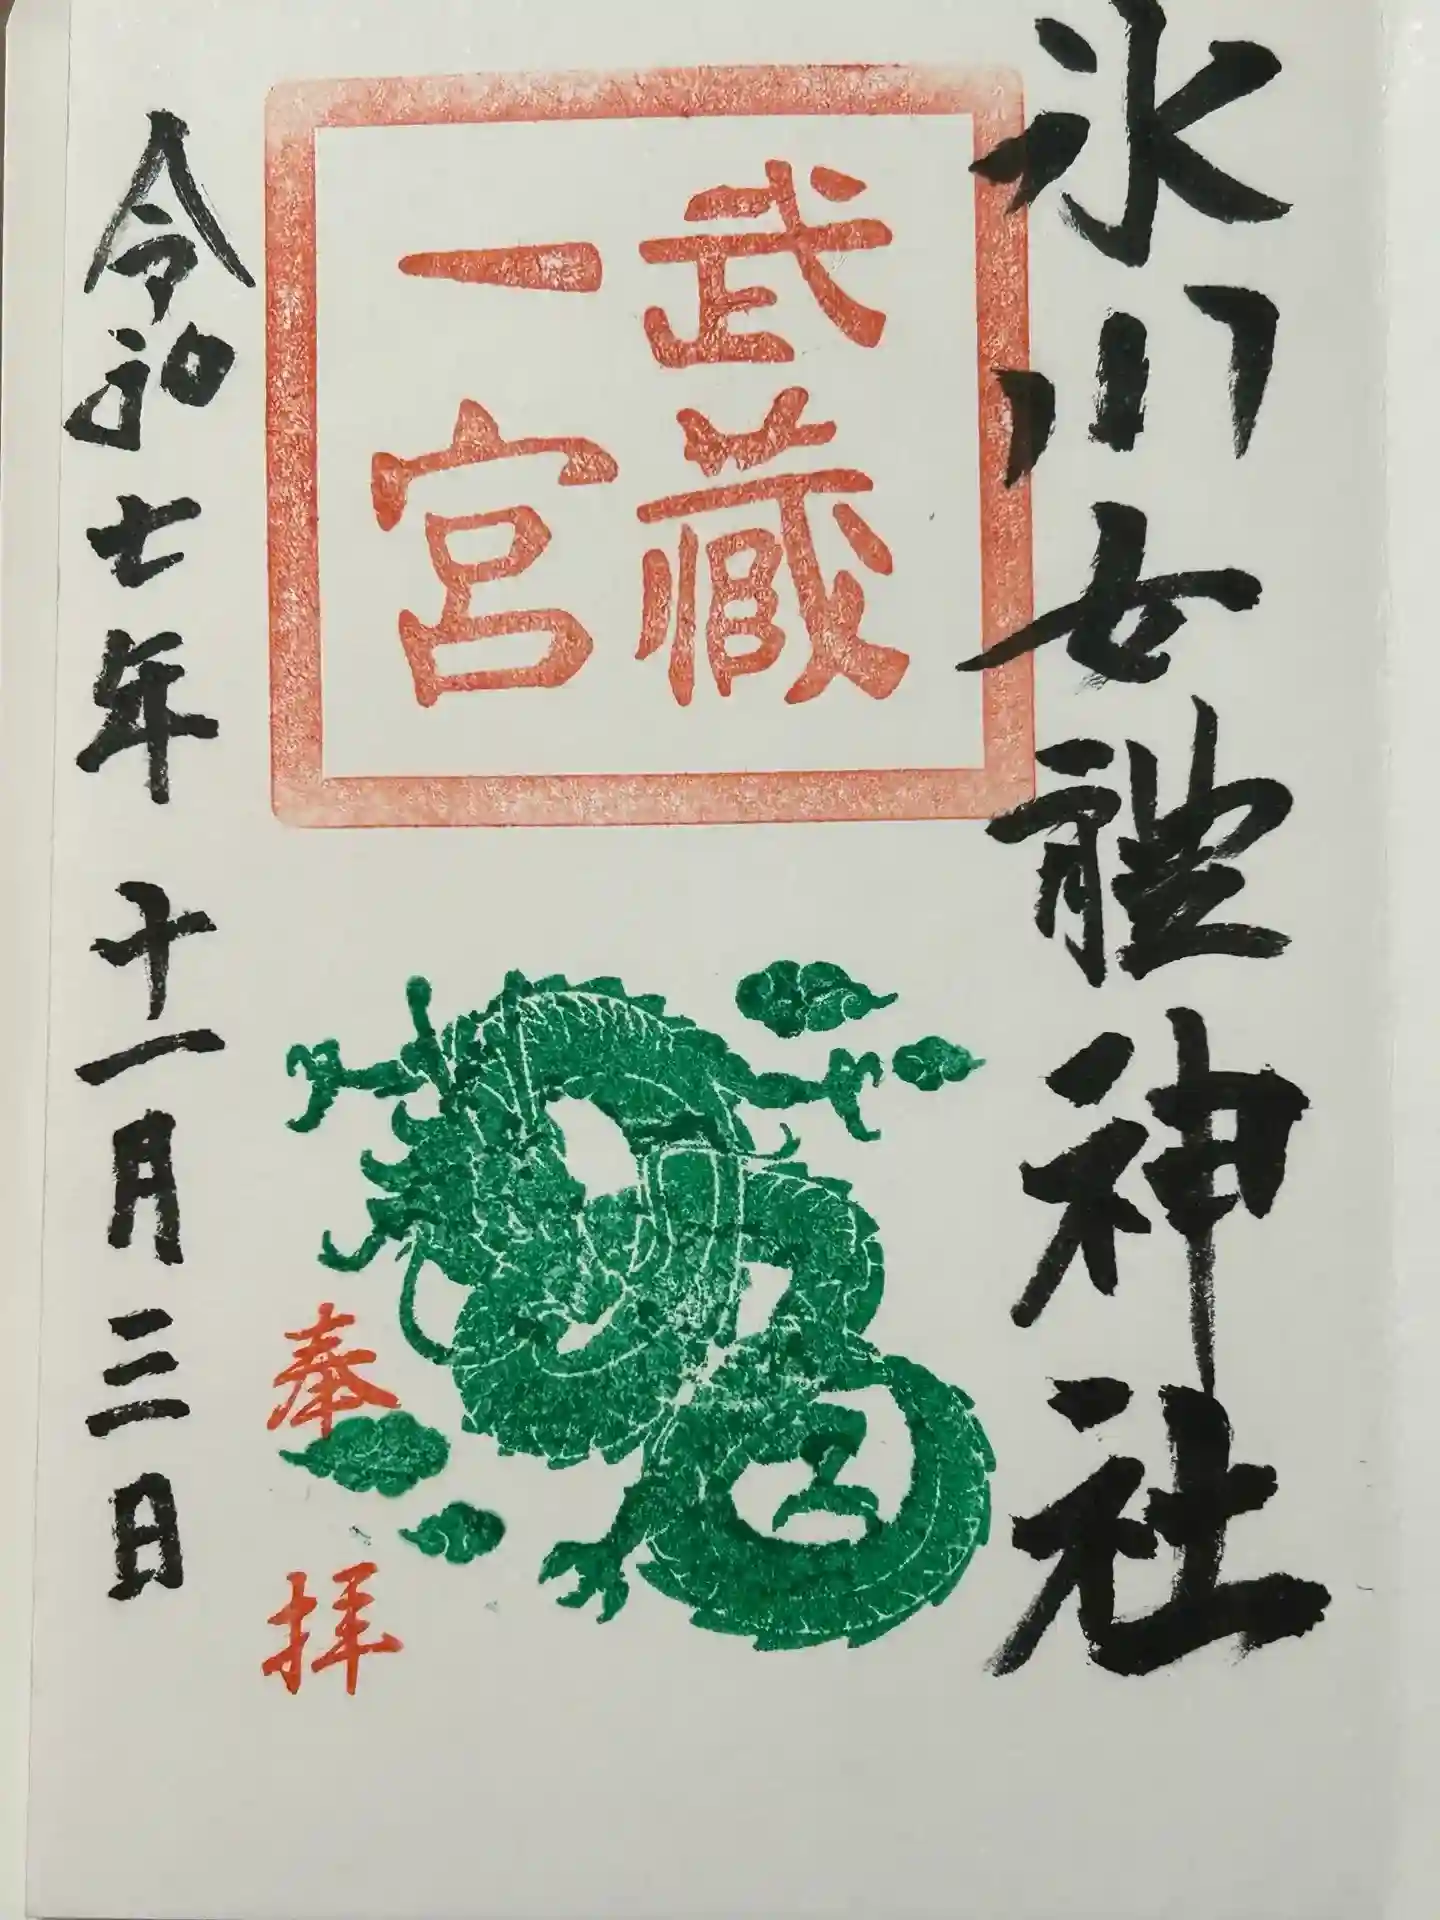 氷川女體神社
武藏
一宮
奉拝
令和七年十一月三日